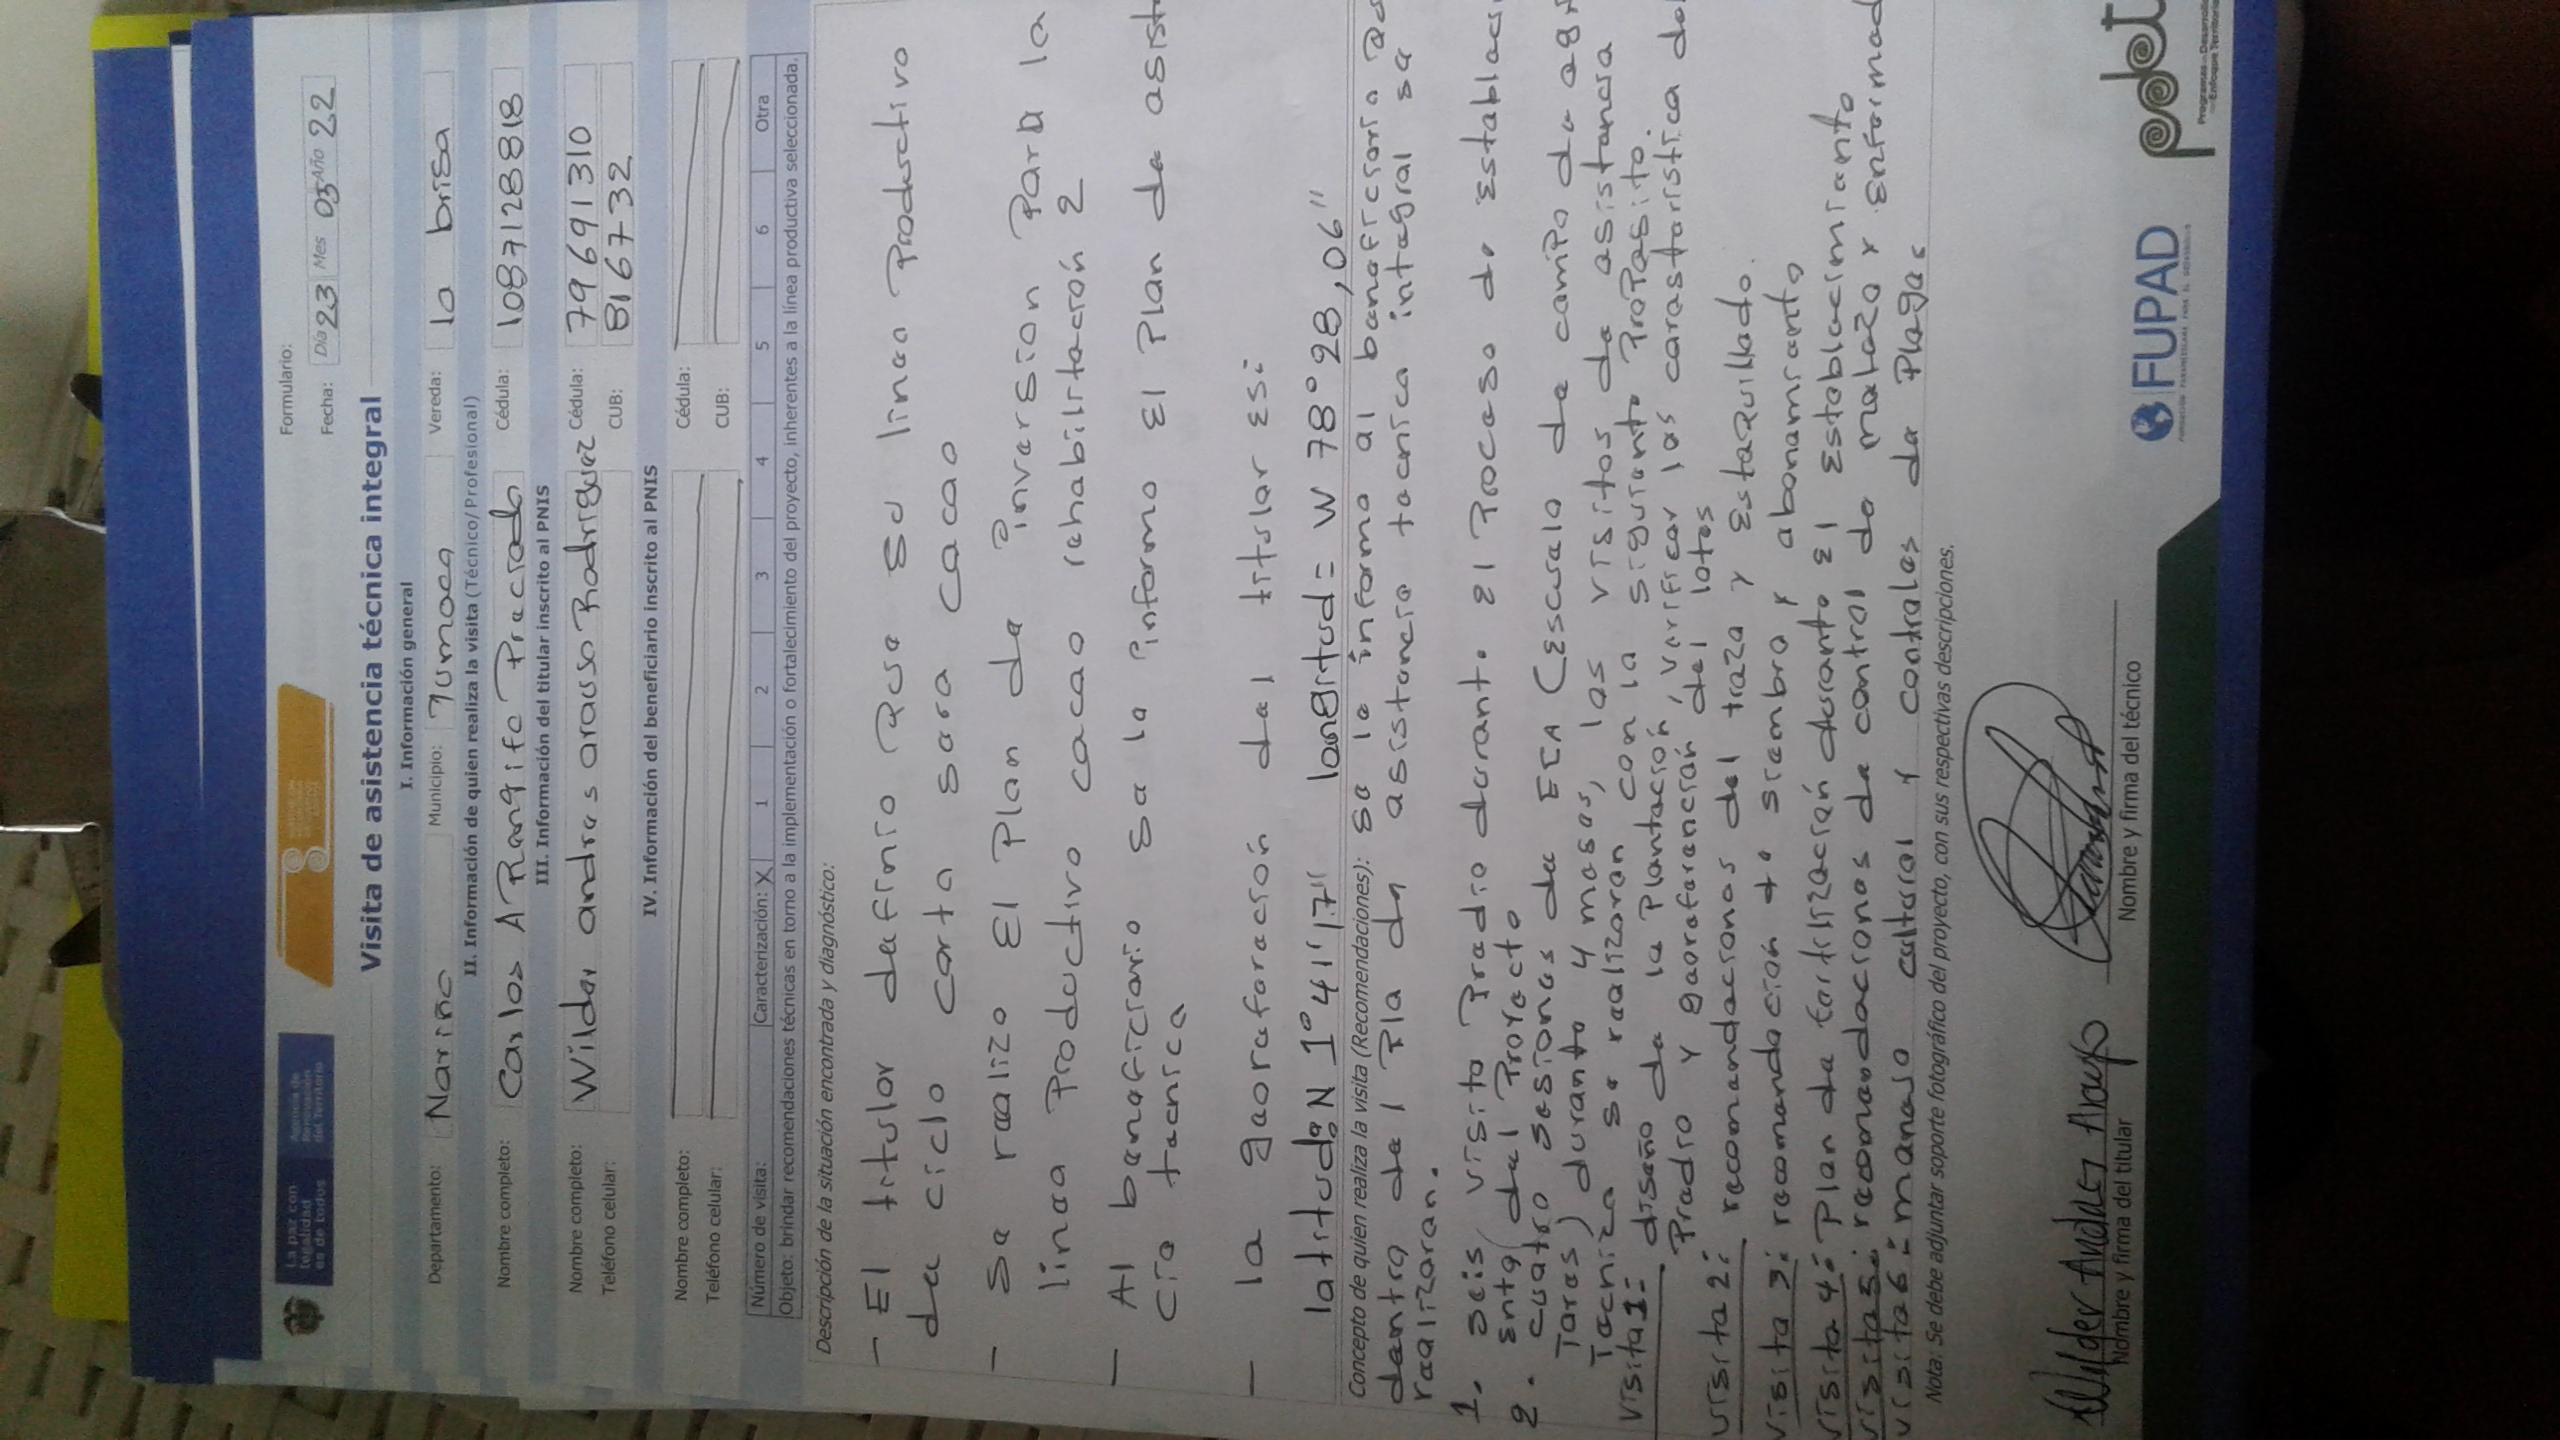 La paz con
legalidad
es de todos
Agencia de
Renovación
del Territorio
Formulario:
Fecha: Día 23 Mes 05 Año 22
Visita de asistencia técnica integral
I. Información general
Departamento: Nariño Municipio: Tumaco Vereda: la brisa
II. Información de quien realiza la visita (Técnico/Profesional)
Nombre completo: Carlos A Rangifo Preciado Cédula: 1087128818
III. Información del titular inscrito al PNIS
Nombre completo: Wilder andres arauso Rodriguez Cédula: 79691310
Teléfono celular: CUB: 816732
IV. Información del beneficiario inscrito al PNIS
Nombre completo: Cédula:
Teléfono celular: CUB:
Número de visita: Caracterización: X 1 2 3 4 5 6 Otra
Objeto: brindar recomendaciones técnicas en torno a la implementación o fortalecimiento del proyecto, inherentes a la línea productiva seleccionada.
Descripción de la situación encontrada y diagnóstico:
- El titular definio que su linea Productivo
de ciclo corto sera cacao
- Se realizo El Plan de inversion Para la
linea Productivo cacao rehabilitación 2
- Al beneficiario se la informo El Plan de asist
cia tecnica
- la georeferación del titular es:
latitud: N 1° 41' 17" longitud = W 78° 28,06"
Concepto de quien realiza la visita (Recomendaciones): se le informo al beneficiario que
dentro del Pla de asistencia tecnica integral se
realizaran.
1. seis visita Predio durante el Proceso de establaci
ento del Proyecto
2. cuatro sesiones de ECA (Escuela de campo de agri
Tores) durante 4 meses, las visitas de asistencia
Tecnica se realizaran con la siguiente Proposito.
Visita 1: diseño de la Plantación, verificar las caracteristica del
Predio y georeferención del lotes
Visita 2: recomendaciones del trazo y Estaquillado.
Visita 3: recomendación de siembra y abonamiento
Visita 4: Plan de fertilización durante El Establecimiento
Visita 5: recomendaciones de control de maleza y Enfermed
Visita 6: manejo cultural y controles de Plagas
Nota: Se debe adjuntar soporte fotográfico del proyecto, con sus respectivas descripciones.
Wilder Andres Araujo
Nombre y firma del titular
Nombre y firma del técnico
FUPAD
pdet
Programas de Desarrollo
con Enfoque Territorial